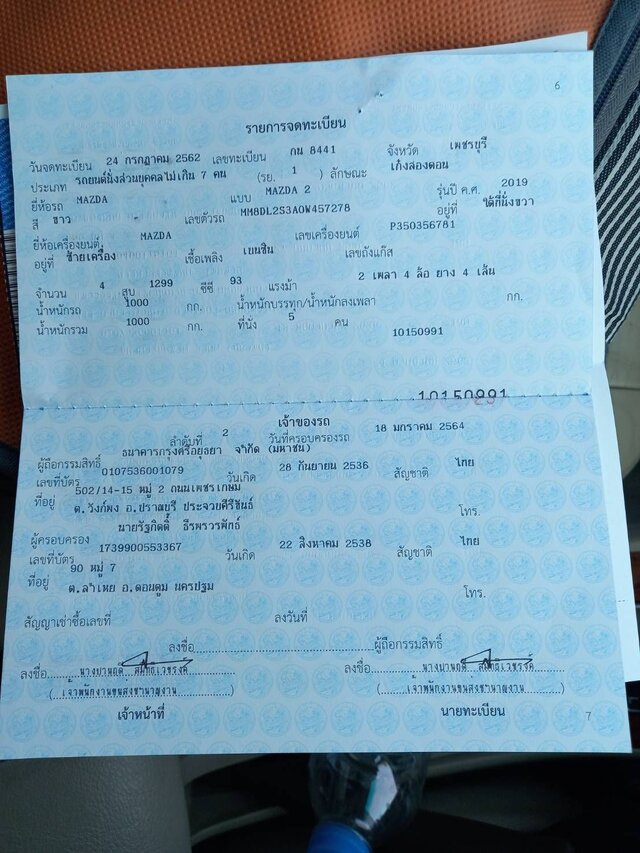 6
รายการจดทะเบียน
วันจดทะเบียน 24 กรกฎาคม 2562 เลขทะเบียน กน 8441 จังหวัด เพชรบุรี
ประเภท รถยนต์นั่งส่วนบุคคลไม่เกิน 7 คน (รย. 1 ) ลักษณะ เก๋งสองตอน
ยี่ห้อรถ MAZDA แบบ MAZDA 2 รุ่นปี ค.ศ. 2019
สี ขาว - เลขตัวรถ MM8DL2S3A0W457278 อยู่ที่ ใต้ที่นั่งขวา
ยี่ห้อเครื่องยนต์ MAZDA เลขเครื่องยนต์ P350356781
อยู่ที่ ซ้ายเครื่อง เชื้อเพลิง เบนซิน เลขถังแก๊ส
จำนวน 4 สูบ 1299 ซีซี 93 แรงม้า 2 เพลา 4 ล้อ ยาง 4 เส้น
น้ำหนักรถ 1000 กก. น้ำหนักบรรทุก/น้ำหนักลงเพลา กก.
น้ำหนักรวม 1000 กก. ที่นั่ง 5 คน 10150991
10150991
เจ้าของรถ
ลำดับที่ 2 วันที่ครอบครองรถ 18 มกราคม 2564
ผู้ถือกรรมสิทธิ์ ธนาคารกรุงศรีอยุธยา จำกัด (มหาชน)
เลขที่บัตร 0107536001079 วันเกิด 28 กันยายน 2536 สัญชาติ ไทย
ที่อยู่ 502/14-15 หมู่ 2 ถนนเพชรเกษม
ต.วังก์พง อ.ปราณบุรี ประจวบคีรีขันธ์ โทร.
ผู้ครอบครอง นายรัฐกิตติ์ ธีรพรวรพักธ์
เลขที่บัตร 1739900553367 วันเกิด 22 สิงหาคม 2538 สัญชาติ ไทย
ที่อยู่ 90 หมู่ 7
ต.ลำเหย อ.ดอนตูม นครปฐม โทร.
สัญญาเช่าซื้อเลขที่ ลงวันที่
ลงชื่อ ผู้ถือกรรมสิทธิ์
ลงชื่อ ลงชื่อ
(เจ้าพนักงานขนส่งชำนาญงาน) (เจ้าพนักงานขนส่งชำนาญงาน)
เจ้าหน้าที่ นายทะเบียน
7